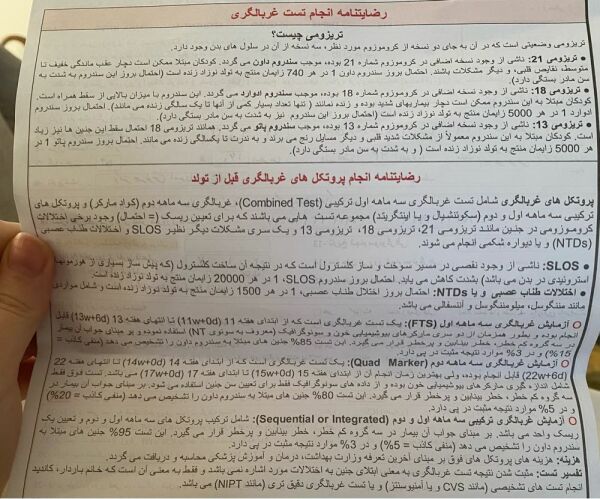 رضایتنامه انجام تست غربالگری
تریزومی چیست؟
تریزومی وضعیتی است که در آن به جای دو نسخه از کروموزوم مورد نظر، سه نسخه از آن در سلول های بدن وجود دارد.
• تریزومی 21: ناشی از وجود نسخه اضافی در کروموزوم شماره 21 بوده، موجب سندروم داون می گردد. کودکان مبتلا ممکن است دچار عقب ماندگی خفیف تا
متوسط، نقایص قلبی، و دیگر مشکلات باشند. احتمال بروز سندروم داون 1 در هر 740 زایمان منتج به تولد نوزاد زنده است (احتمال بروز این سندروم به شدت به
سن مادر بستگی دارد).
• تریزومی 18: ناشی از وجود نسخه اضافی در کروموزوم شماره 18 بوده، موجب سندروم ادوارد می گردد. این سندروم با میزان بالایی از سقط همراه است.
کودکان مبتلا به این سندروم ممکن است دچار بیماریهای شدید بوده و زنده نمانند ( تنها تعداد بسیار کمی از آنها تا یک سالگی زنده می مانند). احتمال بروز سندروم
ادوارد 1 در هر 5000 زایمان منتج به تولد نوزاد زنده است (احتمال بروز این سندروم نیز به شدت به سن مادر بستگی دارد).
• تریزومی 13: ناشی از وجود نسخه اضافی در کروموزوم شماره 13 بوده، موجب سندروم پاتو می گردد. همانند تریزومی 18 احتمال سقط این جنین ها نیز زیاد
است. کودکان مبتلا به این سندروم معمولاً از مشکلات شدید قلبی و دیگر مسایل رنج می برند و به ندرت تا یکسالگی زنده می مانند. احتمال بروز سندروم پاتو 1 در
هر 5000 زایمان منتج به تولد نوزاد زنده است ( و به شدت به سن مادر بستگی دارد).
رضایتنامه انجام پروتکل های غربالگری قبل از تولد
پروتکل های غربالگری شامل تست غربالگری سه ماهه اول ترکیبی (Combined Test)، غربالگری سه ماهه دوم (کواد مارکر) و پروتکل های
ترکیبی سه ماهه اول و دوم (سکوئنشیال و یا اینتگریتد) مجموعه تست هایی می باشند که برای تعیین ریسک (= احتمال) وجود برخی اختلالات
کروموزومی در جنین مانند تریزومی 21، تریزومی 18، تریزومی 13 و یک سری مشکلات دیگر نظیر SLOS و اختلالات طناب عصبی
(NTDs) و یا دیواره شکمی انجام می شوند.
• SLOS: ناشی از وجود نقصی در مسیر سوخت و ساز کلسترول است که در نتیجه آن ساخت کلسترول (که پیش ساز بسیاری از هورمونهای
استروئیدی در بدن می باشد) بشدت کاهش می یابد. احتمال بروز سندروم SLOS، 1 در هر 20000 زایمان منتج به تولد نوزاد زنده است.
• اختلالات طناب عصبی و یا NTDs: احتمال بروز اختلال طناب عصبی، 1 در هر 1500 زایمان منتج به تولد نوزاد زنده است و شامل مواردی
مانند مننگوسل، میلومننگوسل و آننسفالی می باشد.
○ آزمایش غربالگری سه ماهه اول (FTS): یک تست غربالگری است که از ابتدای هفته 11 (11w+0d) تا انتهای هفته 13 (13w+6d) قابل
انجام بوده و بطور همزمان از دو سری مارکرهای بیوشیمیایی خون و سونوگرافیک (معروف به سونوی NT) استفاده نموده و بر مبنای جواب آن بیمار
در سه گروه کم خطر، خطر بینابین و پرخطر قرار می گیرد. این تست 85% جنین های مبتلا به سندروم داون را تشخیص می دهد (منفی کاذب =
15%) و در 3% موارد نتیجه مثبت در پی دارد.
○ آزمایش غربالگری سه ماهه دوم (Quad Marker): یک تست غربالگری است که از ابتدای هفته 14 (14w+0d) تا انتهای هفته 22
(22w+6d) قابل انجام بوده، ولی بهترین زمان انجام آن از ابتدای هفته 15 (15w+0d) تا ابتدای هفته 17 (17w+0d) می باشد. تست فوق فقط
شامل اندازه گیری مارکرهای بیوشیمیایی خون بوده و از داده های سونوگرافیک فقط برای تعیین سن جنین استفاده می شود. بر مبنای جواب آن بیمار در
سه گروه کم خطر، خطر بینابین و پرخطر قرار می گیرد. این تست 80% جنین های مبتلا به سندروم داون را تشخیص می دهد (منفی کاذب = 20%)
و در 5% موارد نتیجه مثبت در پی دارد.
○ آزمایش غربالگری ترکیبی سه ماهه اول و دوم (Sequential or Integrated): شامل ترکیب پروتکل های سه ماهه اول و دوم و تعیین یک
ریسک واحد می باشد. بر مبنای جواب آن بیمار در سه گروه کم خطر، خطر بینابین و پر خطر قرار می گیرد. این تست 95% جنین های مبتلا به
سندروم داون را تشخیص می دهد (منفی کاذب = 5%) و در 3% موارد نتیجه مثبت در پی دارد.
هزینه: هزینه های پروتکل های فوق بر مبنای آخرین تعرفه وزارت بهداشت، درمان و آموزش پزشکی محاسبه و دریافت می گردد.
تفسیر تست: مثبت شدن نتیجه تست غربالگری به معنی ابتلای جنین به اختلالات مورد اشاره نمی باشد و فقط به معنی آن است که خانم باردار، کاندید
انجام تست های تشخیصی (مانند CVS و یا آمنیوسنتز) و یا تست غربالگری دقیق تری (مانند NIPT) می باشد.